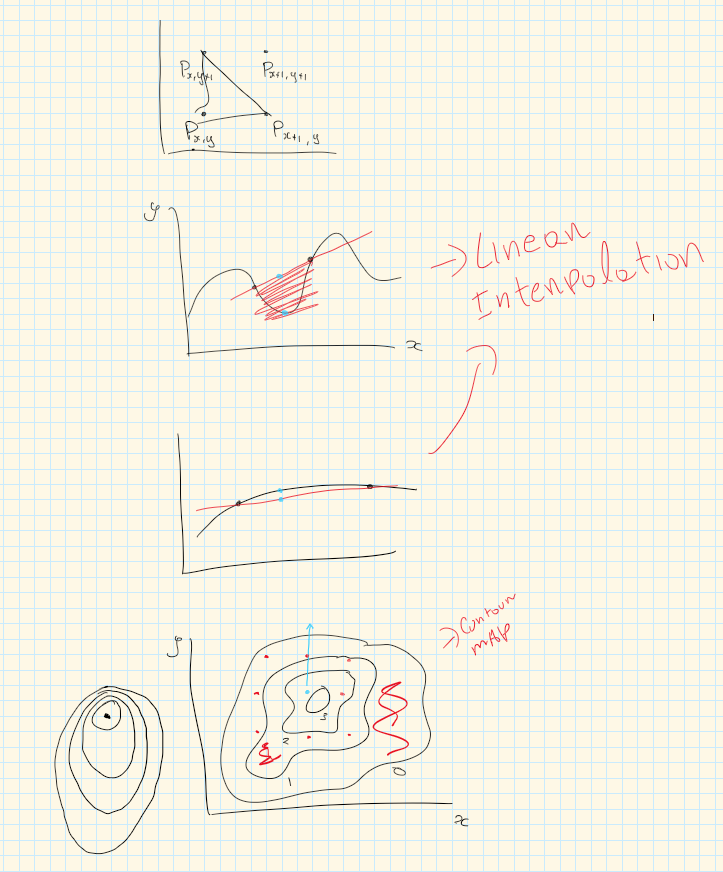 Px,y+1 Px+1,y+1
Px,y Px+1,y
y
→ Linear
Interpolation
x
→ Contour
MAP
y
3
2
1
0
x